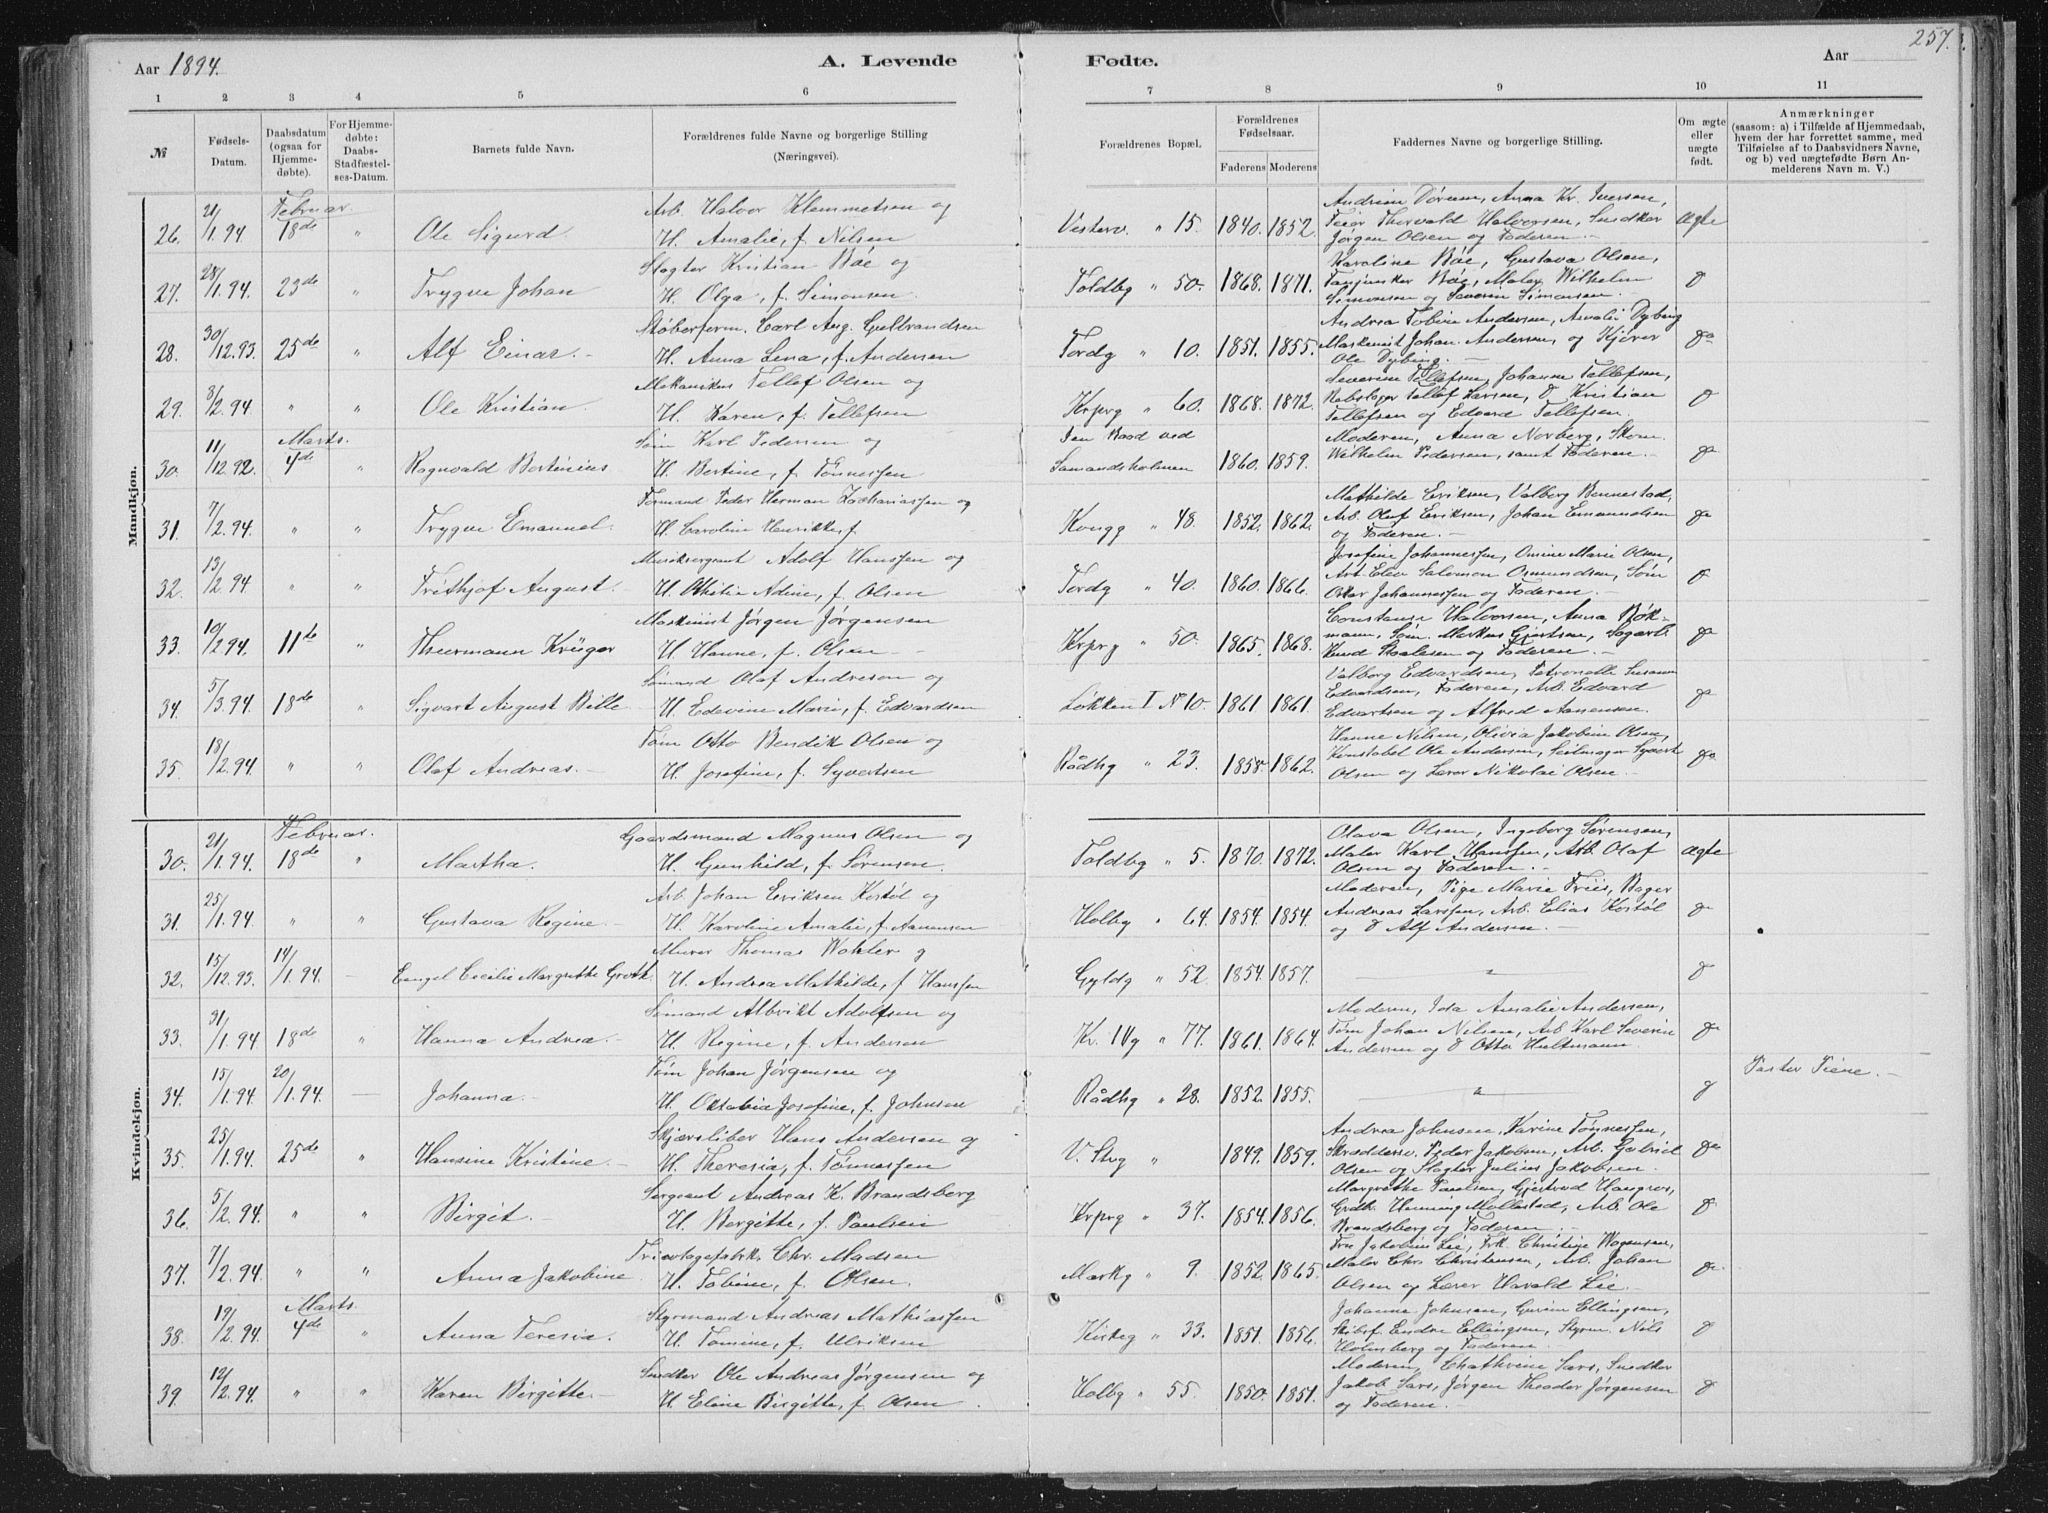 Aar 1894. A. Levende Fødte. Aar 257.
1 2 3 4 5 6 7 8 9 10 11
№ Fødsels-Datum. Daabsdatum (ogsaa for Hjemmedøbte). For Hjemmedøbte: Daabs-Stadfæstelses-Datum. Barnets fulde Navn. Forældrenes fulde Navne og borgerlige Stilling (Næringsvei). Forældrenes Bopæl. Forældrenes Fødselsaar. Faderens Moderens Faddernes Navne og borgerlige Stilling. Om ægte eller uægte født. Anmærkninger (saasom: a) i Tilfælde af Hjemmedaab, hvem der har forrettet samme, med Tilføielse af to Daabsvidners Navne, og b) ved uægtefødte Børn Anmelderens Navn m. V.)
Mandkjøn.
Februar.
26. 21/1.94. 18de " Ole Sigurd Arb. Halvor Klemmetsen og H. Amalie, f. Nilsen Vesterv. " 15. 1840. 1852. Anna Kr. Iversen, Feier Thorvald Halvorsen, Snedker Jørgen Olsen og Faderen.— ægte
27. 28/1.94. 23de " Trygve Johan Slagter Kristian Bøe og H. Olga, f. Simonsen. Toldbg " 50. 1868. 1871. Karoline Bøe, Gustava Olsen, Bøe, Maler Wilhelm Simonsen og Severin Simonsen.
28. 30/12.93. 25de " Alf Einar.— Støberform. Carl Aug. Gulbrandsen H. Anna Lena, f. Andersen Tordg " 10. 1851. 1855. Andrea Tobine Andersen, Amalie Dybing Maskinist Johan Andersen, og Kjører Ole Dybing.—
29. 3/2.94. " " Ole Kristian. Mekanikus Tellef Olsen og H. Karen, f. Tellefsen Krprg " 60. 1868. 1872. Severine Tellefsen, Johanne Tellefsen, Rebslager Tellef Larsen, Kristian Tellefsen og Edvard Tellefsen.
Marts.
30. 11/12.92. 4de " Ragnvald Bertinius Søm Karl Pedersen og H. Bertine, f. Tønnessen I en Baad ved Samandsholmen 1860. 1859. Moderen, Anna Norberg, Skom. Wilhelm Pedersen, samt Faderen.—
31. 7/2.94. " " Trygve Emanuel. Formand Peder Herman Zachariassen og H. Caroline Henrikke, f. Kongg " 48. 1852. 1862. Mathilde Eriksen, Valborg Bennestad, Arb. Olaf Eriksen, Johan Emanuelsen og Faderen.—
32. 13/2.94 " " Frithjof August. Musiksergeant Adolf Hanssen og H. Othilie Adine, f. Olsen Tordg " 40. 1860. 1866. Josefine Johannessen, Omine Marie Olsen, Arb. Elev Salomon Osmundsen, Søm Oskar Johannessen og Faderen.—
33. 10/2.94. 11te " Thurmann Krüger Maskinist Jørgen Jørgensen H. Hanne, f. Olsen— Krprg " 50. 1865. 1868. Constanse Halvorsen, Anna Bøkmann, Søm. Markus Gjertsen, Sagarb. Knud Skaalesen og Faderen.—
34. 5/3.94. 18de " Sigvart August Bille Sømand Olaf Andreson og H. Edevine Marie, f. Edvardsen Løkken I № 10. 1861 1861. Valborg Edvardsen, Petronelle Susanne Edvardsen, Faderen, Arb. Edvard Edvartsen og Alfred Aanensen.
35. 18/2.94. " " Olaf Andreas.— Tøm Otto Bendik Olsen og H. Josefine, f. Syvertsen Rådhg " 23. 1858 1862. Hanne Nilsen, Olivia Jakobine Olsen, Konstabel Ole Andersen, Seilmager Syvert Olsen og Lærer Nikolai Olsen.—
Kvindekjøn.
Februar.
30. 21/1.94. 18de " Martha. Gaardsmand Magnus Olsen og H. Gunhild, f. Sørensen. Toldbg " 5. 1870. 1872. Olava Olsen, Ingeborg Sørensen, Maler Karl Hanssen, Arb. Olaf Olsen og Faderen.— ægte
31. 25/1.94. " " Gustava Regine.— Arb. Johan Eriksen Kostøl og H. Karoline Amalie, f. Aanensen Holbg " 64. 1854. 1854. Moderen, Pige Marie Friis, Bager Andreas Larssen, Arb. Elias Kostøl og Alf Andersen.—
32. 15/12.93. 14/1.94. — Engel Cecilie Margrethe Groth Murer Thomas Wohler og H. Andrea Mathilde, f. Hanssen Gyldg " 52 1854. 1857. — " —
33. 31/1.94 18de " Hanna Andrea.— Sømand Albrikt Adolfsen og H. Regine, f. Andersen Kr. IVg " 77. 1861. 1864. Moderen, Ida Amalie Andersen, Tøm Johan Nilsen, Arb. Karl Severin Andersen og Otto Hultmann.
34. 15/1.94. 20/1.94. — Johanna.— Tøm Johan Jørgensen og H. Oktavia Josefine, f. Johnsen Rådhg " 28. 1852. 1855. — " — Pastor Tiene.—
35. 25/1.94. 25de " Hansine Kristine— Skjærsliber Hans Andersen og H. Theresia, f. Tønnessen V. Stvg " 1849. 1859. Andrea Johnsen, Karine Tønnessen, Skræddersv. Peder Jakobsen, Arb. Gabriel Olsen og Slagter Julius Jakobsen.
36. 5/2.94. " " Birgit.— Sergeant Andreas K. Brandsberg H. Bergitte, f. Paulsen Krprg " 37. 1854. 1856. Margrethe Paulsen, Gjertrud Hangros, Grdb. Henning Mollestad, Arb. Ole Brandsberg og Faderen.—
37. 7/2.94. " " Anna Jakobine Tricotagefabrk. Chr. Madsen H. Tobine, f. Olsen. Markg " 9. 1852. 1865. Fru Jakobine Lie, Frk. Christine Wogensen, Maler Chr. Christensen, Arb. Johan Olsen og Lærer Harald Lie.
Marts.
38. 19/2.94. 4de " Anna Teresia. Styrmand Andreas Mathiassen H. Tomine, f. Ulriksen Kirkeg " 33. 1851. 1856. Johanne Johnsen, Gurine Ellingsen, Skibsf. Endre Ellingsen, Styrm. Nils Holmberg og Faderen.
39. 12/2.94. " " Karen Birgitte— Snedker Ole Andreas Jørgensen og H. Eline Birgitte, f. Olsen. Holbg " 55. 1850. 1851. Moderen, Chathrine Sars, Snedker Jakob Sars, Jørgen Theodor Jørgensen og Faderen.